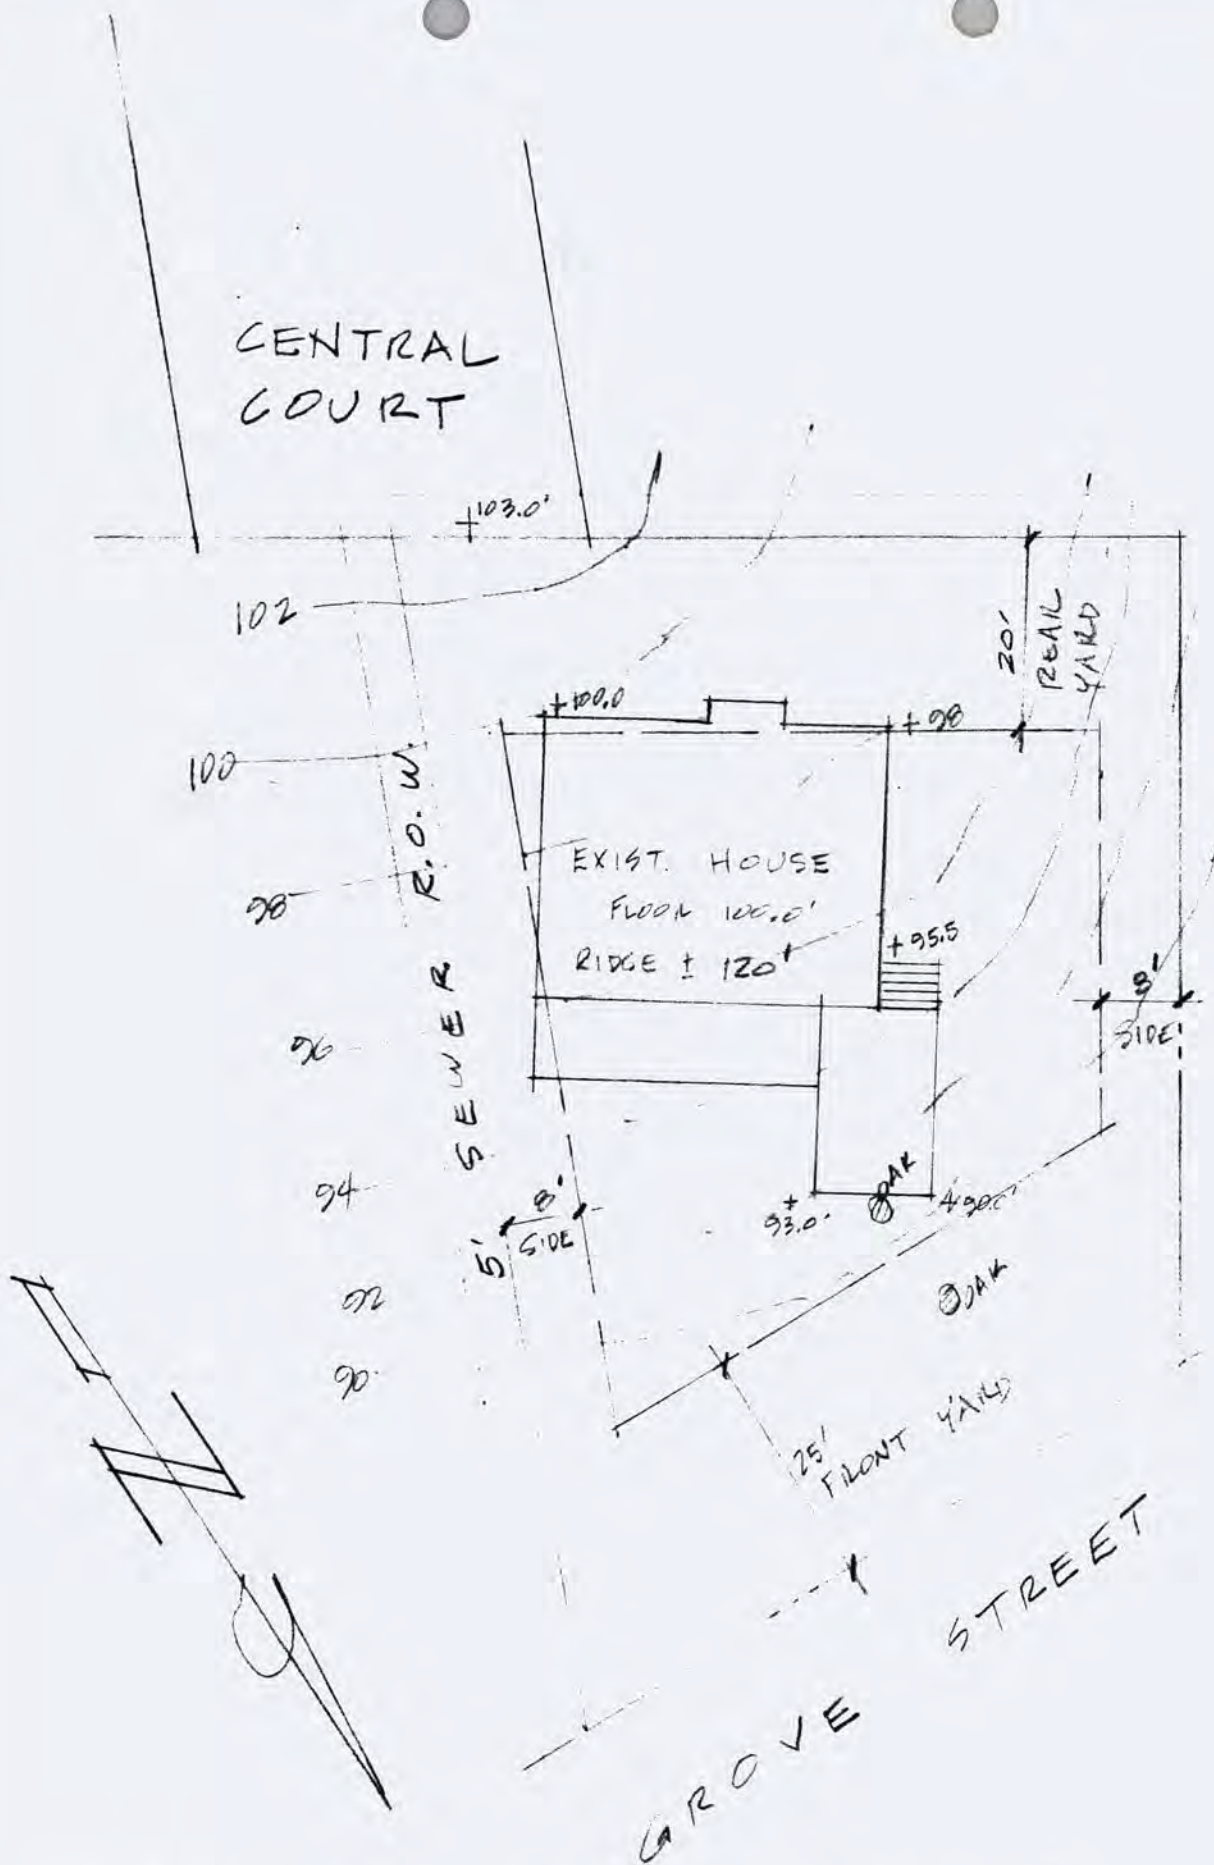 CENTRAL
COURT
+103.0'
102
20'
REAR
YARD
+100.0
+98
100
SEWER R.O.W.
EXIST. HOUSE
FLOOR 100.0'
RIDGE ± 120'
98
+95.5
8'
SIDE
96
94
8'
SIDE
5'
+
93.0'
OAK
+90.0'
92
OAK
90
N
25'
FRONT YARD
GROVE STREET